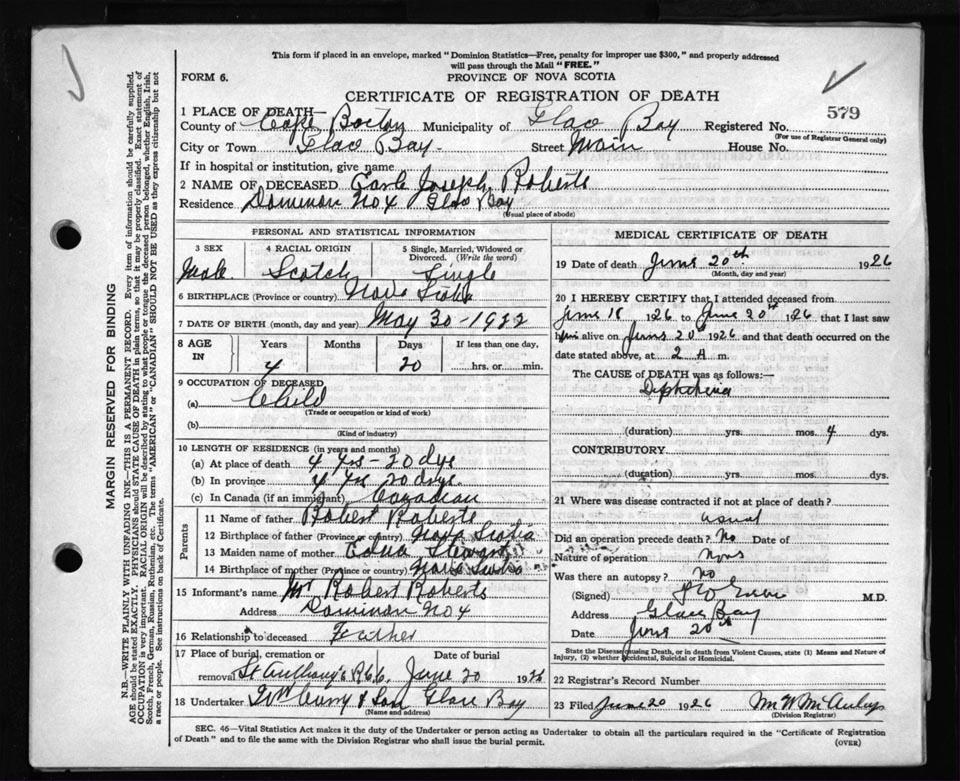 This form if placed in an envelope, marked "Dominion Statistics—Free, penalty for improper use $300," and properly addressed
will pass through the Mail "FREE."
FORM 6.
PROVINCE OF NOVA SCOTIA
CERTIFICATE OF REGISTRATION OF DEATH
579
1 PLACE OF DEATH—
County of Cape Breton Municipality of Glace Bay Registered No.
(For use of Registrar General only)
City or Town Glace Bay - Street Main House No.
If in hospital or institution, give name
2 NAME OF DECEASED Earle Joseph Roberts
Residence Dominion No 4 Glace Bay
(Usual place of abode)
PERSONAL AND STATISTICAL INFORMATION
3 SEX Male
4 RACIAL ORIGIN Scotch
5 Single, Married, Widowed or Divorced. (Write the word) Single
6 BIRTHPLACE (Province or country) Nova Scotia
7 DATE OF BIRTH (month, day and year) May 30 - 1922
8 AGE IN
Years Months Days If less than one day,
4 20 hrs. or min.
9 OCCUPATION OF DECEASED
(a) Child
(Trade or occupation or kind of work)
(b)
(Kind of industry)
10 LENGTH OF RESIDENCE (in years and months)
(a) At place of death 4 yrs - 20 dys
(b) In province 4 yrs 20 dys
(c) In Canada (if an immigrant) Canadian
Parents
11 Name of father Robert Roberts
12 Birthplace of father (Province or country) Nova Scotia
13 Maiden name of mother Edna Stewart
14 Birthplace of mother (Province or country) Nova Scotia
15 Informant's name Mr Robert Roberts
Address Dominion No 4
16 Relationship to deceased Father
17 Place of burial, cremation or removal St Anthony's R.C.C. Date of burial June 20 1926
18 Undertaker Wm Curry & Son Glace Bay
(Name and address)
MEDICAL CERTIFICATE OF DEATH
19 Date of death June 20th 1926
(Month, day and year)
20 I HEREBY CERTIFY that I attended deceased from
June 18 1926 to June 20th 1926 that I last saw
him alive on June 20th 1926 and that death occurred on the
date stated above, at 2 A m.
The CAUSE OF DEATH was as follows:—
Diphtheria
(duration) yrs. mos. 4 dys.
CONTRIBUTORY
(duration) yrs. mos. dys.
21 Where was disease contracted if not at place of death?
usual
Did an operation precede death? No Date of
Nature of operation None
Was there an autopsy? No
(Signed) M.D.
Address Glace Bay
Date June 20th
State the Disease causing Death, or in death from Violent Causes, state (1) Means and Nature of
Injury, (2) whether Accidental, Suicidal or Homicidal.
22 Registrar's Record Number
23 Filed June 20 1926
(Division Registrar)
SEC. 45—Vital Statistics Act makes it the duty of the Undertaker or person acting as Undertaker to obtain all the particulars required in the "Certificate of Registration
of Death" and to file the same with the Division Registrar who shall issue the burial permit.
(OVER)
MARGIN RESERVED FOR BINDING
N.B.—WRITE PLAINLY WITH UNFADING INK—THIS IS A PERMANENT RECORD. Every item of information should be carefully supplied.
AGE should be stated EXACTLY. PHYSICIANS should STATE CAUSE OF DEATH in plain terms, so that it may be properly classified. Exact statement of
OCCUPATION is very important. RACIAL ORIGIN will be described by stating to what people or tongue the deceased person belonged, whether English, Irish,
Scotch, French, German, Russian, Ruthenian, etc. The terms "AMERICAN" or "CANADIAN" SHOULD NOT BE USED as they express citizenship but not
a race or people. See instructions on back of Certificate.